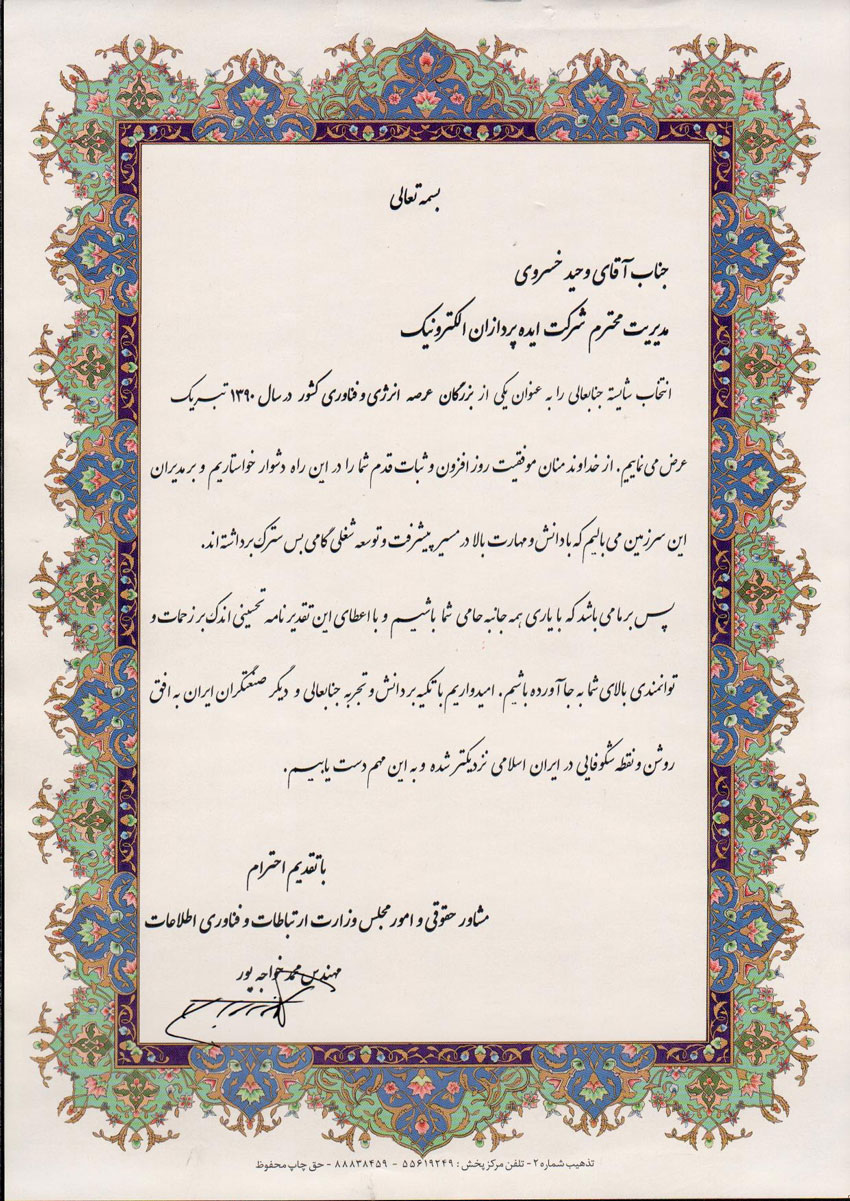 بسمه تعالی
جناب آقای وحید خسروی
مدیریت محترم شرکت ایده پردازان الکترونیک
انتخاب شایسته جنابعالی را به عنوان یکی از بزرگان عرصه انرژی و فناوری کشور در سال ۱۳۹۰ تبریک
عرض می نماییم. از خداوند منان موفقیت روز افزون و ثبات قدم شما را در این راه دشوار خواستاریم و بر مدیران
این سرزمین می بالیم که با دانش و مهارت بالا در مسیر پیشرفت و توسعه شغلی گامی بس سترک برداشته اند.
پس بر ما می باشد که با یاری همه جانبه حامی شما باشیم و با اعطای این تقدیر نامه تحسینی اندک بر زحمات و
توانمندی بالای شما به جا آورده باشیم. امیدواریم با تکیه بر دانش و تجربه جنابعالی و دیگر صنعتگران ایران به افق
روشن و نقطه شکوفایی در ایران اسلامی نزدیکتر شده و به این مهم دست یابیم.
با تقدیم احترام
مشاور حقوقی و امور مجلس وزارت ارتباطات و فناوری اطلاعات
مهندس محمد خواجه پور
تذهیب شماره ۲ - تلفن مرکز پخش : ۵۵۶۱۹۲۴۹ - ۸۸۸۳۸۴۵۹ - حق چاپ محفوظ